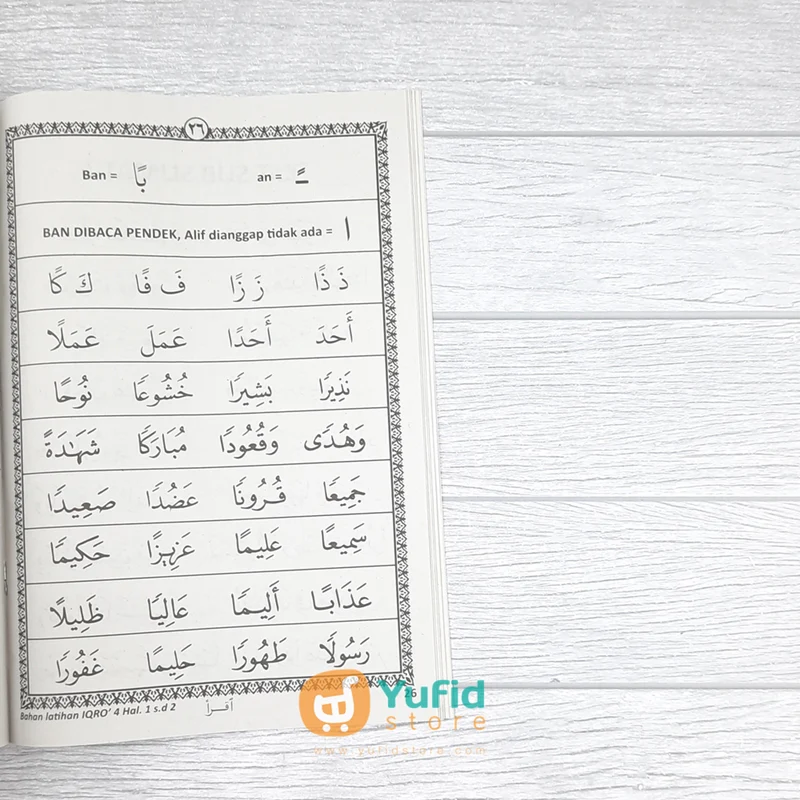 ٢٦
Ban = بًا an = ـً
BAN DIBACA PENDEK, Alif dianggap tidak ada = ا
ذَ ذًا زَ زًا فَ فًا كَ كًا
أَحَدَ أَحَدًا عَمَلَ عَمَلًا
نَذِيرًا بَشِيرًا خُشُوعًا نُوحًا
وَهُدًى وَقُعُودًا مُبَارَكًا شَهَٰدَةً
جَمِيعًا قُرُونًا عَضُدًا صَعِيدًا
سَمِيعًا عَلِيمًا عَزِيزًا حَكِيمًا
عَذَابًا أَلِيمًا عَالِيًا ظَلِيلًا
رَسُولًا طَهُورًا حَلِيمًا غَفُورًا
26
Bahan latihan IQRO' 4 Hal. 1 s.d 2 اقرأ
Yufid
store
www.yufidstore.com